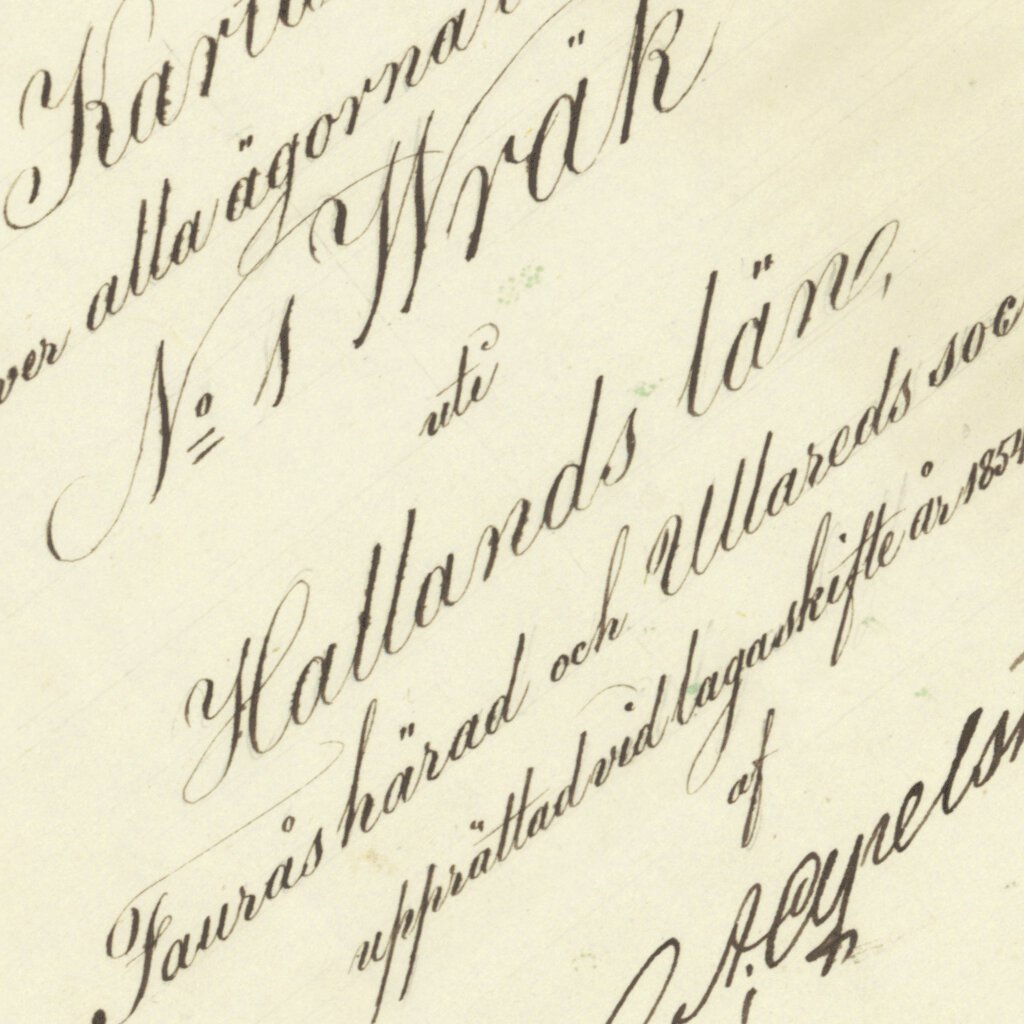 Karta
över alla ägorna
No 1 Wräk
uti
Hallands län,
Faurås härad och Ullareds soc
upprättad vid lagaskifte år 1854
af